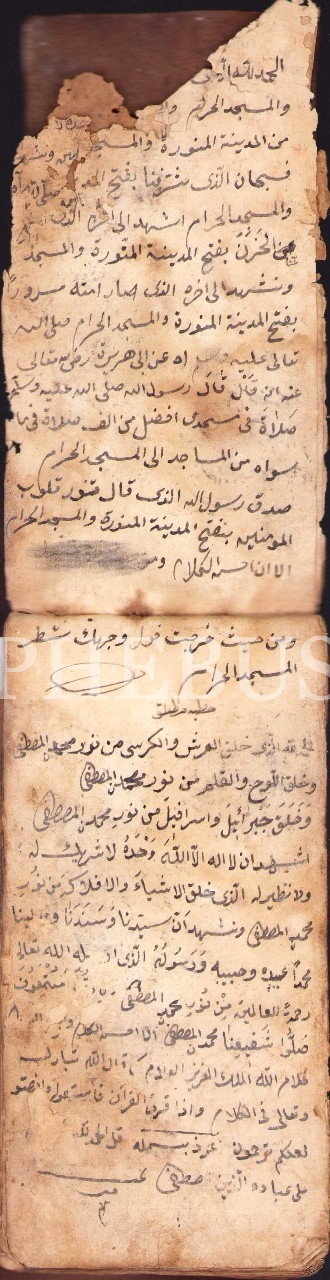 الحمد لله الذى
والمسجد الحرام
من المدينة المنورة والمسجد
فسبحان الذى شرفنا بفتح المد
والمسجد الحرام اشهد الى اخره الذى
الحزن بفتح المدينة المنورة والمسجد
ونشهد الى اخره الذى صار امته مسرورا
بفتح المدينة المنورة والمسجد الحرام صلى الله
تعالى عليه وسلم عن ابى هريرة رضى الله تعالى
عنه انه قال قال رسول الله صلى الله عليه وسلم
صلاة فى مسجدى افضل من الف صلاة فى ما
سواه من المساجد الى المسجد الحرام
صدق رسول الله الذى قال فنور قلوب
المومنين بفتح المدينة المنورة والمسجد الحرام
الا ان احسن الكلام
ومن حيث خرجت فول وجهك شطر
المسجد الحرام
PHEBUS
خطبه
الحمد لله الذى خلق العرش والكرسى من نور محمد المصطفى
وخلق اللوح والقلم من نور محمد المصطفى
وخلق جبرائيل واسرافيل من نور محمد المصطفى
اشهد ان لا اله الا الله وحده لا شريك له
ولا نظير له الذى خلق الاشياء والافلاك من نور
محمد المصطفى ونشهد ان سيدنا وسندنا
محمدا عبده وحبيبه ورسوله الذى ارسله الله تعالى
رحمة للعالمين من نور محمد المصطفى
صلوا شفيعنا محمد المصطفى الا احسن الكلام
كلام الله الملك العزيز العلام كما قال الله تبارك
وتعالى فى الكلام واذا قرئ القران فاستمعوا له وانصتوا
لعلكم ترحمون اعوذ بسمله قل الحمد لله
على عباده الذين اصطفى